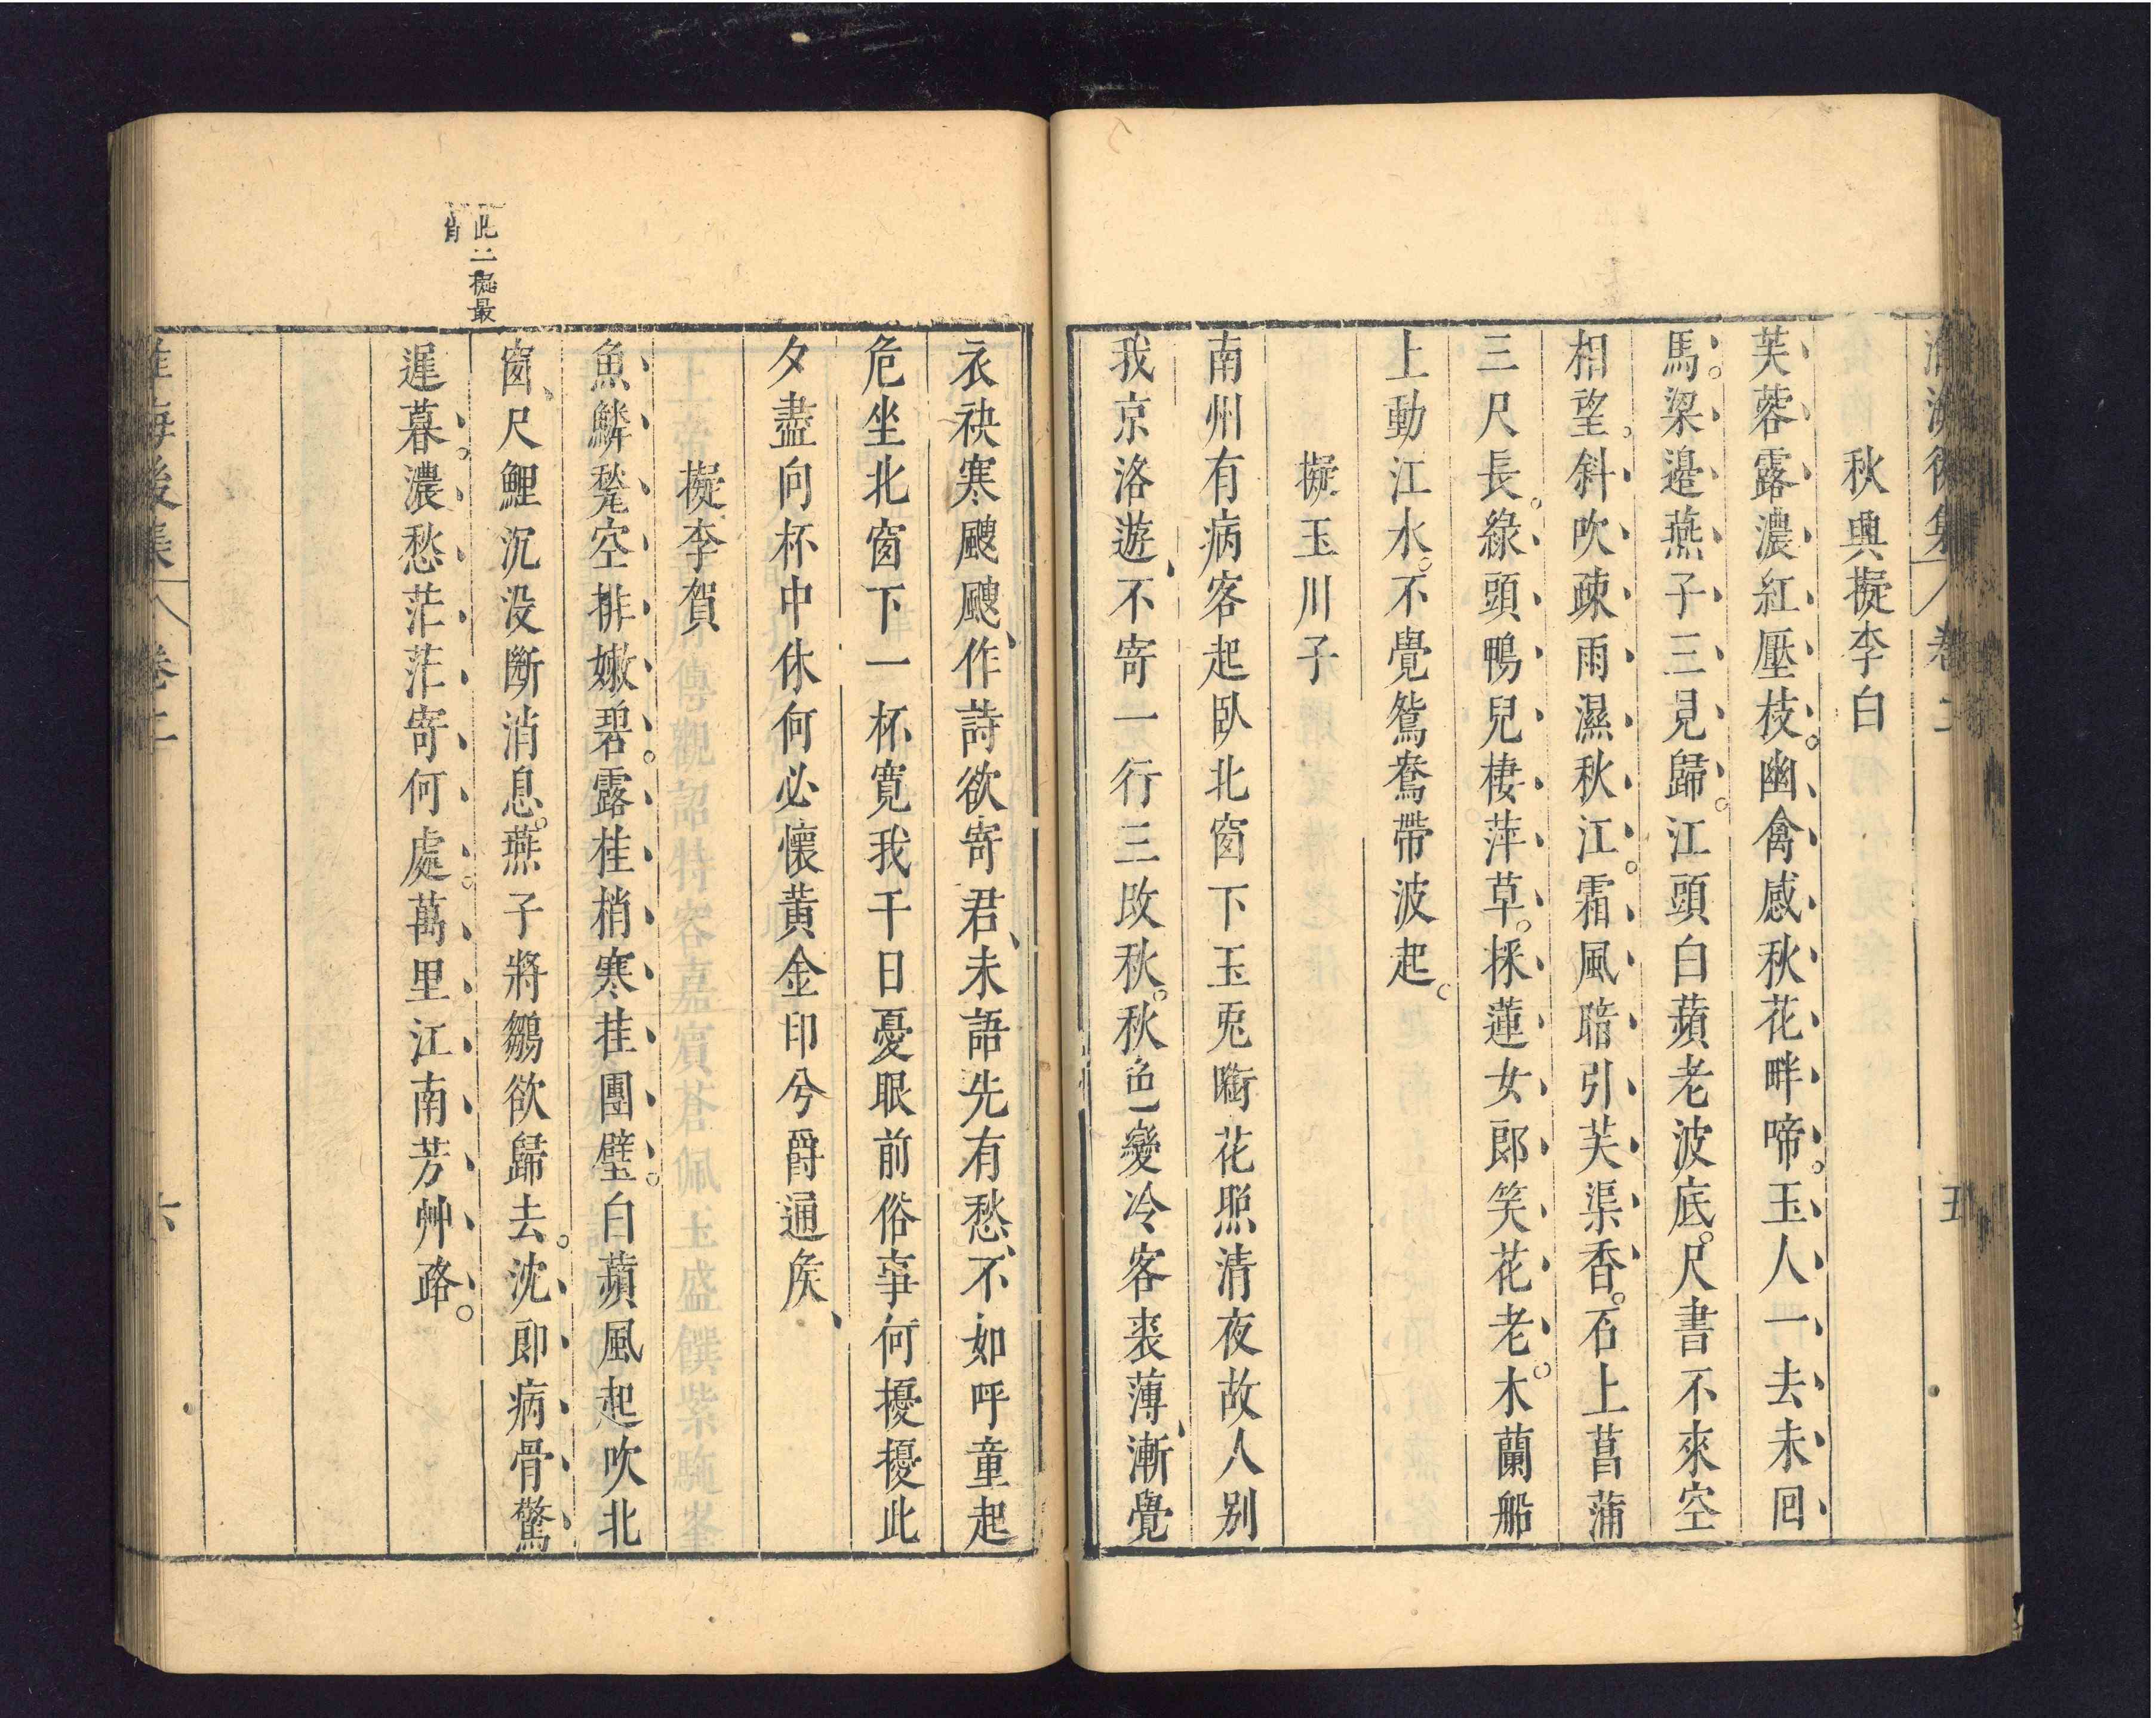 淮海後集 卷二 五
秋興擬李白
芙蓉露濃紅壓枝。幽禽感秋花畔啼。玉人一去未回
馬。梁邉燕子三見歸。江頭白蘋老波底。尺書不來空
相望。斜吹疎雨濕秋江。霜風暗引芙渠香。石上菖蒲
三尺長。綠頭鴨兒棲萍草。採蓮女郎笑花老。木蘭船
上動江水。不覺鴛鴦帶波起。
擬玉川子
南州有病客起臥北窗下玉兎嚙花照清夜故人別
我京洛遊、不寄一行三改秋。秋色變冷客裘薄、漸覺
衣袂寒颼颼、作詩欲寄君、未語先有愁、不如呼童起
危坐北窗下一杯寬我千日憂眼前俗事何擾擾此
夕盡向杯中休何必懷黃金印兮爵通矦、
擬李賀
此二擬最
肖
魚鱗甃空排嫩碧。露桂梢寒挂團璧。白蘋風起吹北
窗、尺鯉沉没斷消息。燕子將鶵欲歸去。沈郎病骨驚
遲暮。濃愁茫茫寄何處。萬里江南芳艸路。
淮海後集 卷二 六